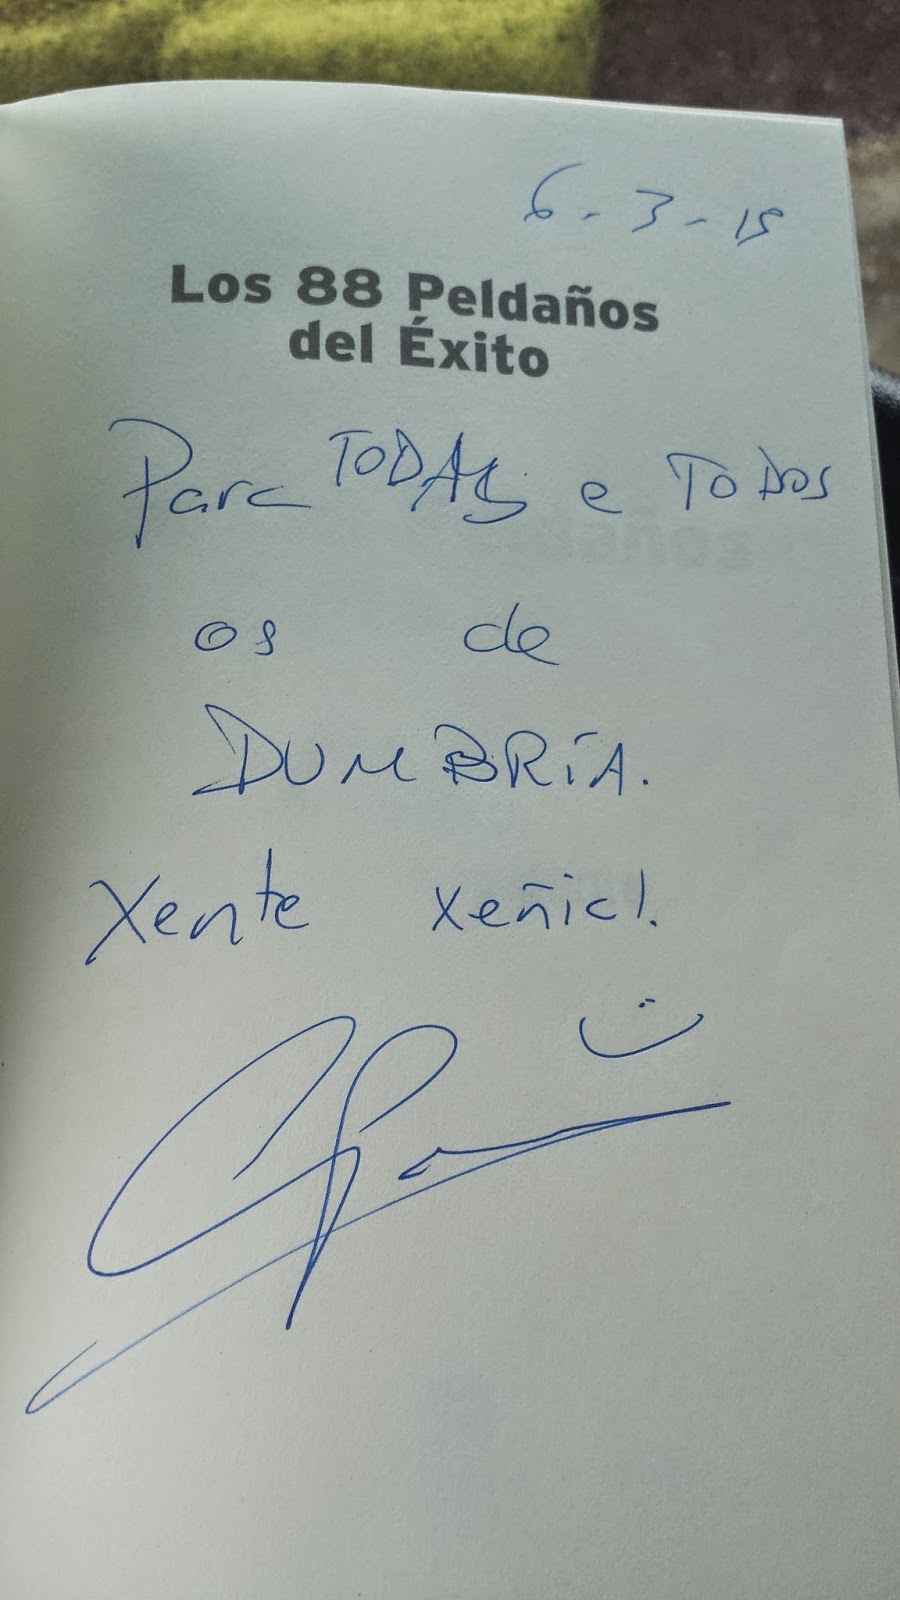 6-3-15
Los 88 Peldaños
del Éxito
Para TODAS e TODOS
os de
DUMBRÍA.
Xente xeñial.